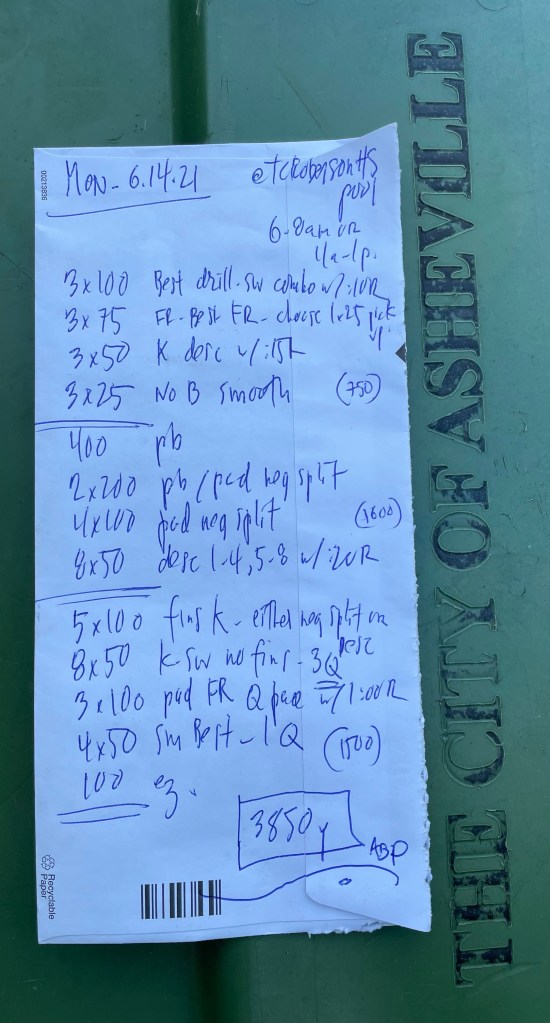 00213836
Mon - 6.14.21
@TCRobersonHS
pool
6-8am or
11a-1p.
3x100 Best drill-sw combo w/:10R
3x75 FR-Best FR-choose 1x25 pick
3x50 K desc w/:15R
3x25 No B smooth (750)
400 pb
2x200 pb/pad neg split
4x100 pad neg split (1600)
8x50 desc 1-4, 5-8 w/:20R
5x100 fins K - either neg split or
desc
8x50 K-sw no fins - 3Q
3x100 pad FR Q pace w/1:00R
4x50 sm Best - 1 Q (1500)
100 ez.
3850y
ABP
Recyclable
Paper
THE CITY OF ASHEVILLE